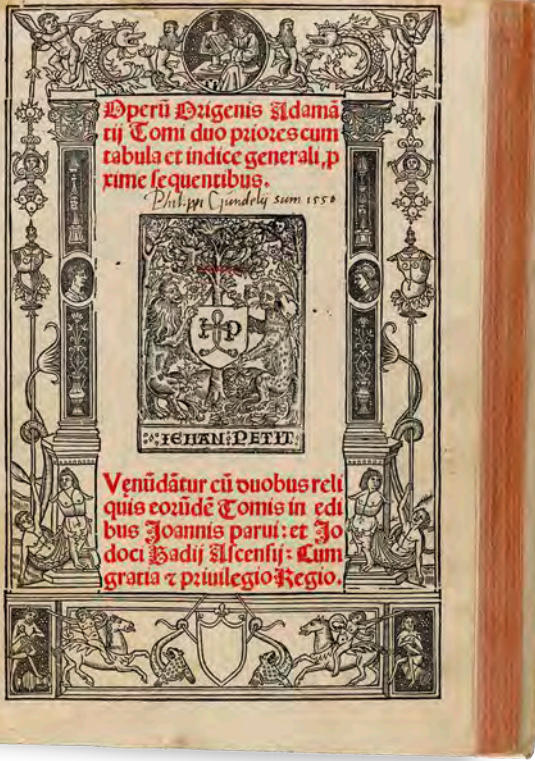 Operū Origenis Adamā
tij Tomi duo priores cum
tabula et indice generali, ꝓ
xime sequentibus.
Philippi Gundelij sum 1550
HP
IEHAN PETIT
Venūdātur cū duobus reli
quis eorūdē Tomis in edi
bus Joannis parui: et Jo
doci Badij Ascensij: Cum
gratia ⁊ priuilegio Regio.